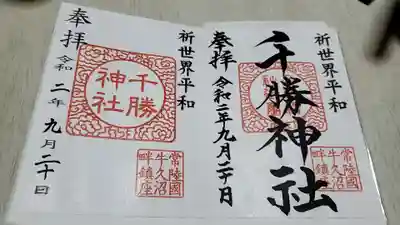 祈世界平和
千勝神社
奉拝 令和二年九月二十日
常陸國
牛久沼
畔鎮座
祈世界平和
千勝
神社
奉拝
令和二年九月二十日
常陸國
牛久沼
畔鎮座